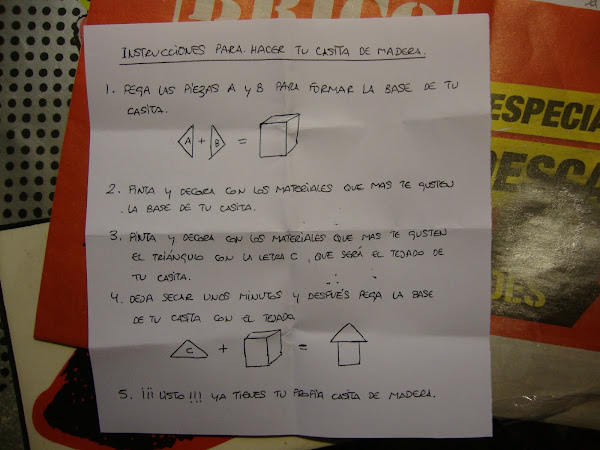 BRICO
INSTRUCCIONES PARA HACER TU CASITA DE MADERA.
1. PEGA LAS PIEZAS A Y B PARA FORMAR LA BASE DE TU
CASITA.
A + B =
2. PINTA Y DECORA CON LOS MATERIALES QUE MAS TE GUSTEN
LA BASE DE TU CASITA.
3. PINTA Y DECORA CON LOS MATERIALES QUE MAS TE GUSTEN
EL TRIÁNGULO CON LA LETRA C, QUE SERÁ EL TEJADO DE
TU CASITA.
4. DEJA SECAR UNOS MINUTOS Y DESPUÉS PEGA LA BASE
DE TU CASITA CON EL TEJADO
C + =
5. ¡¡¡ LISTO !!! YA TIENES TU PROPIA CASITA DE MADERA.
ESPECIA